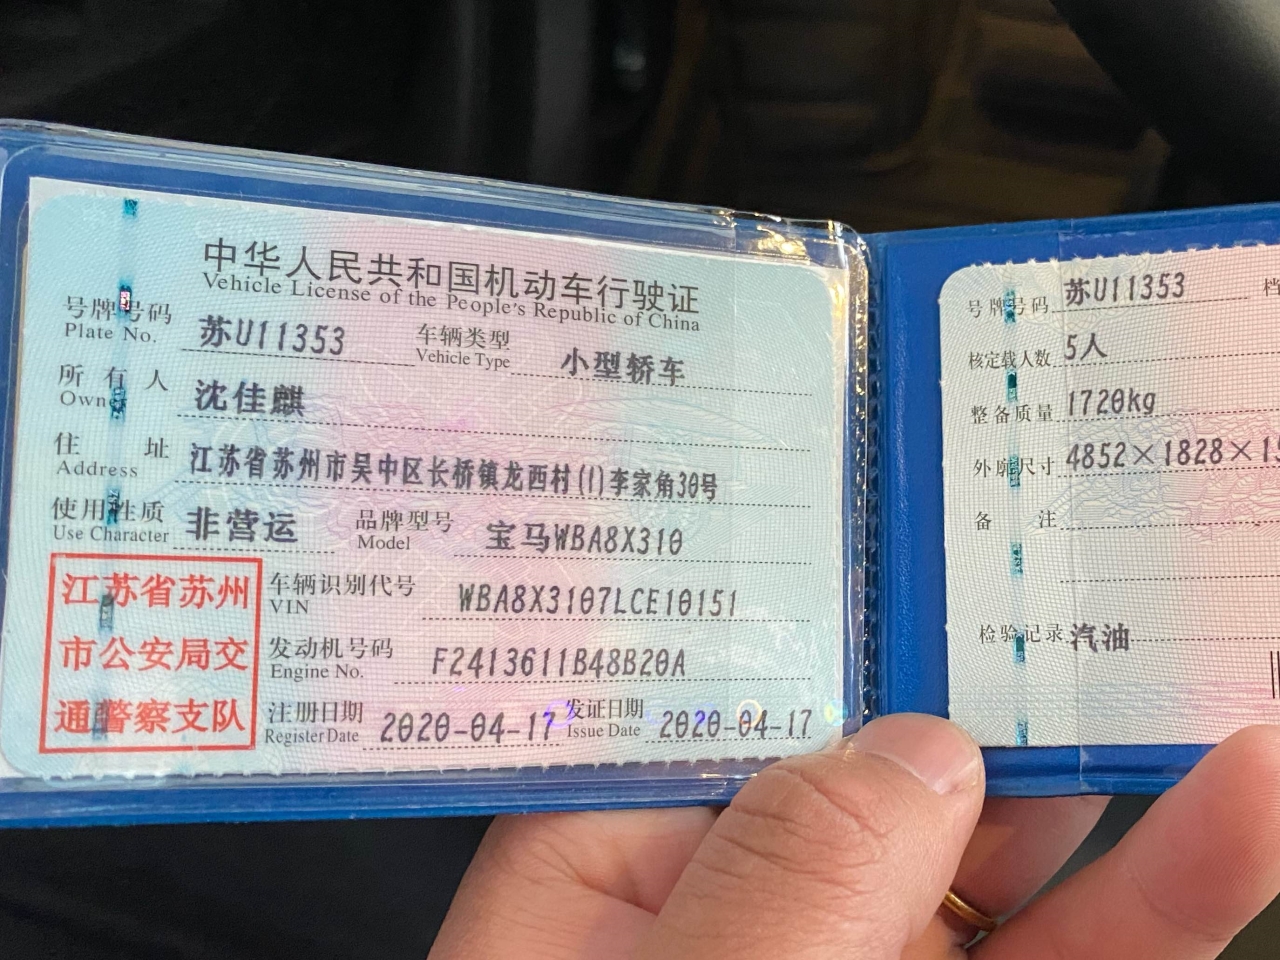 中华人民共和国机动车行驶证
Vehicle License of the People's Republic of China
号牌号码 苏U11353 车辆类型 小型轿车
Plate No. Vehicle Type
所有人 沈佳麒
Owner
住址 江苏省苏州市吴中区长桥镇龙西村(1)李家角30号
Address
使用性质 非营运 品牌型号 宝马WBA8X310
Use Character Model
江苏省苏州
市公安局交
通警察支队
车辆识别代号 WBA8X3107LCE10151
VIN
发动机号码 F2413611B48B20A
Engine No.
注册日期 2020-04-17 发证日期 2020-04-17
Register Date Issue Date
号牌号码 苏U11353 档
核定载人数 5人
整备质量 1720kg
外廓尺寸 4852×1828×1
备注
检验记录 汽油